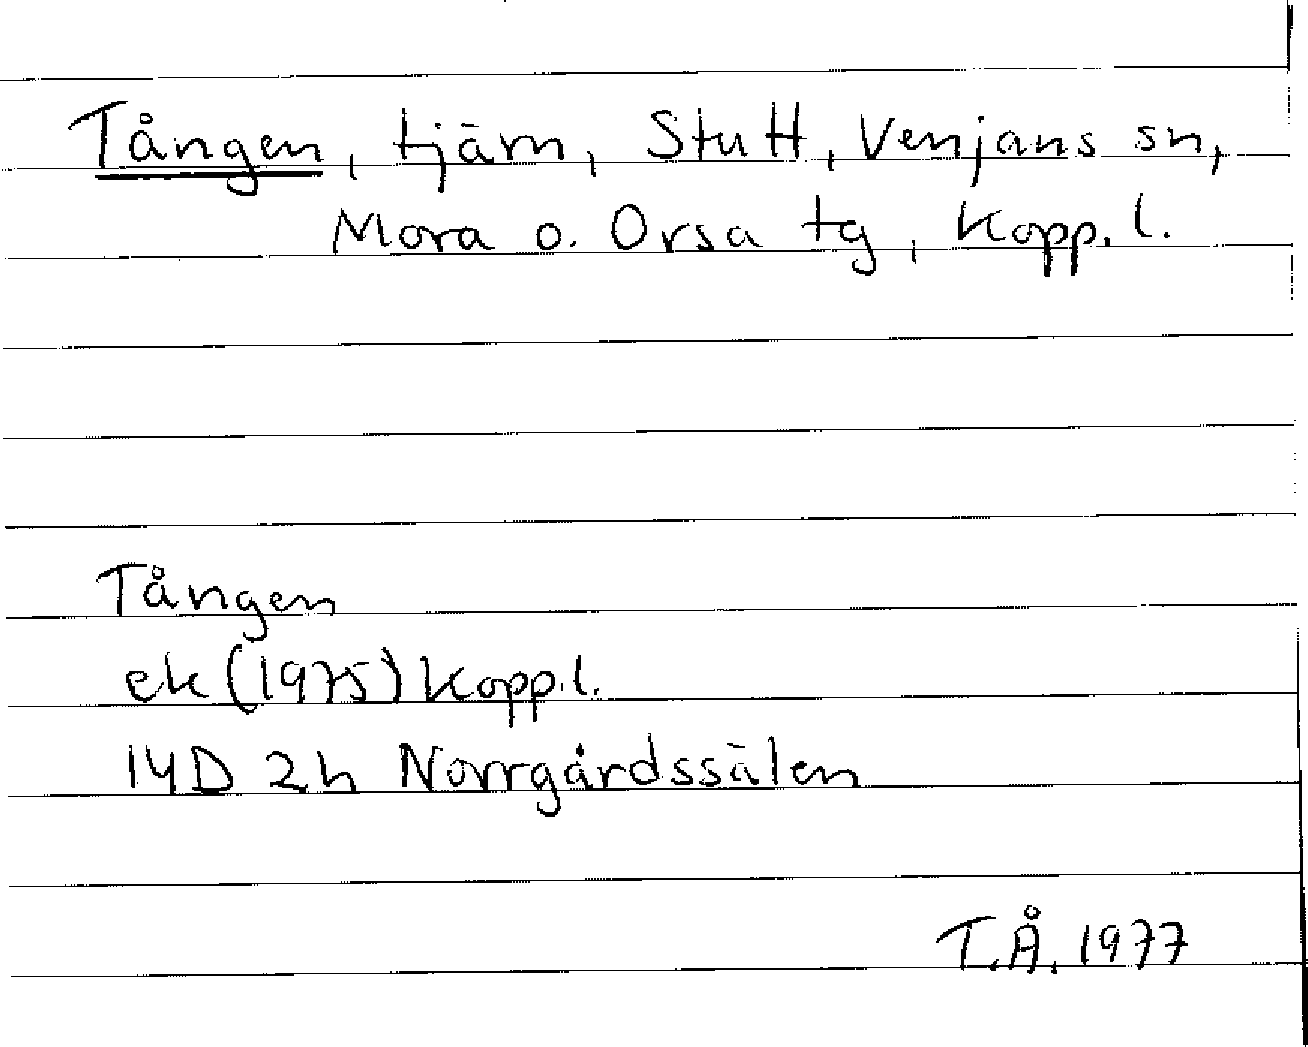 Tången, tjärn, Stutt, Venjans sn,
Mora o. Orsa tg, Kopp. l.
Tången
ek (1975) Kopp.l.
14D 2h Norrgårdssälen
T.Å. 1977